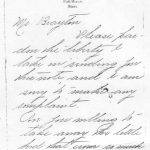 Mr. Brayton
Please par
don the liberty I
take in sending for
the note, and I am
sorry to make any
complaint.
I'm
willing to
take away the little
bed that
so much